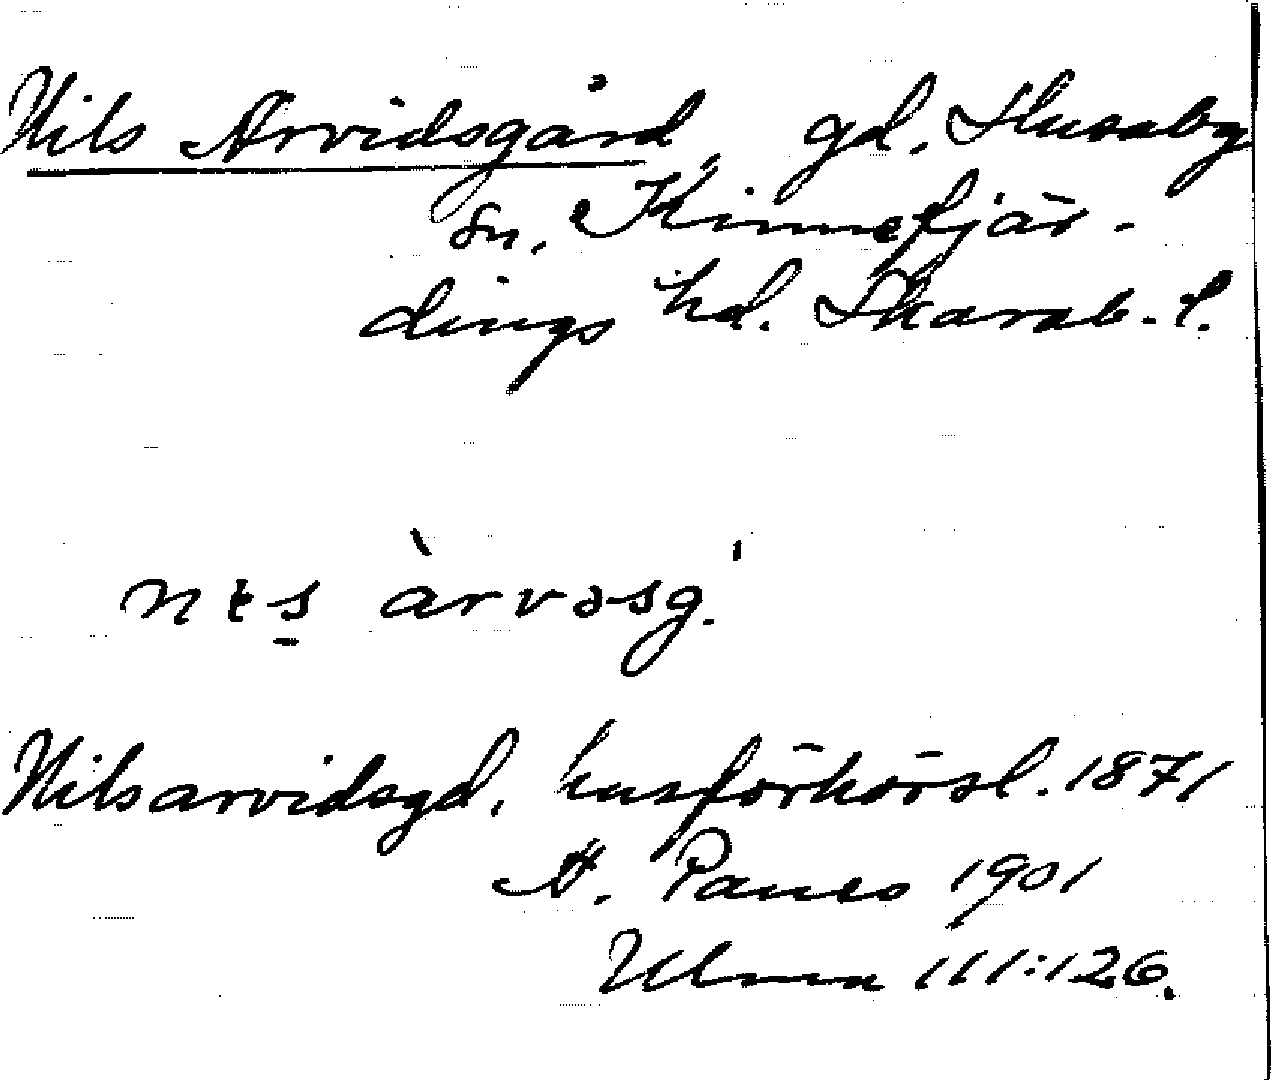 Nils Arvidsgård, gd. Husaby
sn. Kinnefjär-
dings hd. Skarab. l.
àrvəsg.
Nilsarvidsgd. husförhörsl. 1871
A. Paues 1901
Ulma 111:126.